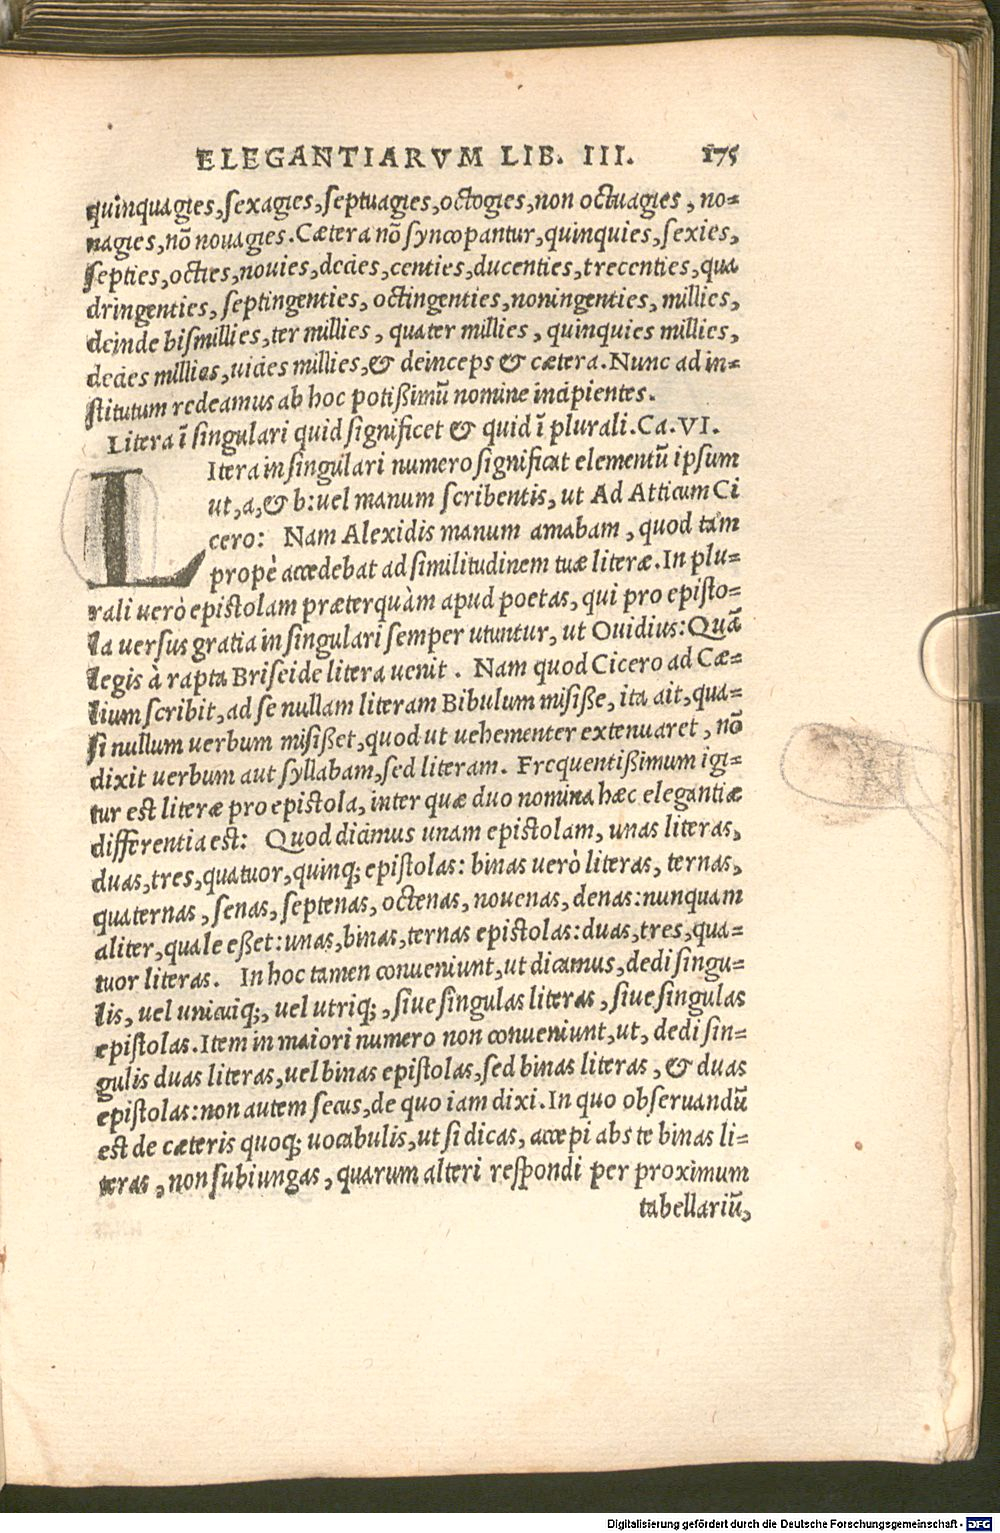 ELEGANTIARVM LIB. III. 175
quinquagies, sexagies, septuagies, octogies, non octuagies, no=
nagies, nō nouagies. Cætera nō syncopantur, quinquies, sexies,
septies, octies, nouies, decies, centies, ducenties, trecenties, qua
dringenties, septingenties, octingenties, noningenties, millies,
deinde bis millies, ter millies, quater millies, quinquies millies,
decies millies, uicies millies, & deinceps & cætera. Nunc ad in=
stitutum redeamus ab hoc potißimū nomine incipientes.
Litera ī singulari quid significet & quid ī plurali. Ca. VI.
LItera in singulari numero significat elementū ipsum
ut, a, & b: uel manum scribentis, ut Ad Atticum Ci
cero: Nam Alexidis manum amabam, quod tam
propè accedebat ad similitudinem tuæ literæ. In plu=
rali uerò epistolam præterquàm apud poetas, qui pro episto=
la uersus gratia in singulari semper utuntur, ut Ouidius: Quā
legis à rapta Briseide litera uenit. Nam quod Cicero ad Cæ=
lium scribit, ad se nullam literam Bibulum misiße, ita ait, qua=
si nullum uerbum misißet, quod ut uehementer extenuaret, nō
dixit uerbum aut syllabam, sed literam. Frequentißimum igi=
tur est literæ pro epistola, inter quæ duo nomina hæc elegantiæ
differentia est: Quod dicimus unam epistolam, unas literas,
duas, tres, quatuor, quinq; epistolas: binas uerò literas, ternas,
quaternas, senas, septenas, octenas, nouenas, denas: nunquam
aliter, quale eßet: unas, binas, ternas epistolas: duas, tres, qua=
tuor literas. In hoc tamen conueniunt, ut dicamus, dedi singu=
lis, uel unicuiq;, uel utriq;, siue singulas literas, siue singulas
epistolas. Item in maiori numero non conueniunt, ut, dedi sin=
gulis duas literas, uel binas epistolas, sed binas literas, & duas
epistolas: non autem secus, de quo iam dixi. In quo obseruandū
est de cæteris quoq; uocabulis, ut si dicas, accepi abs te binas li=
teras, non subiungas, quarum alteri respondi per proximum
tabellariū,
Digitalisierung gefördert durch die Deutsche Forschungsgemeinschaft - DFG